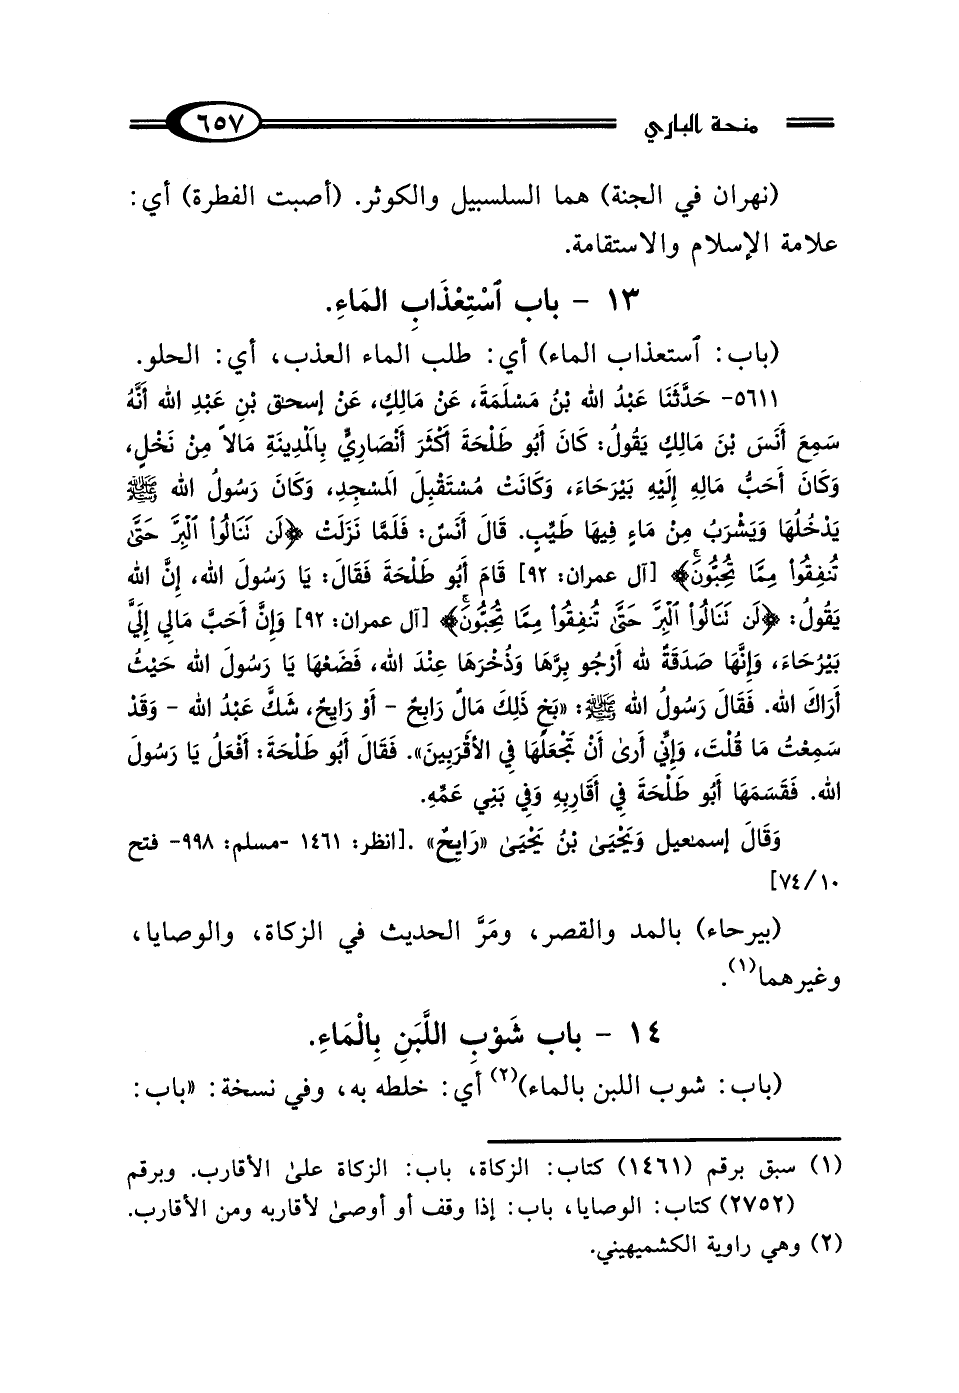 منحة الباري ٦٥٧
(نهران في الجنة) هما السلسبيل والكوثر. (أصبت الفطرة) أي:
علامة الإسلام والاستقامة.
١٣ - باب ٱسْتِعْذَابِ المَاءِ.
(باب: ٱستعذاب الماء) أي: طلب الماء العذب، أي: الحلو.
٥٦١١- حَدَّثَنَا عَبْدُ الله بْنُ مَسْلَمَةَ، عَنْ مَالِكٍ، عَنْ إسحٰق بْنِ عَبْدِ الله أَنَّهُ
سَمِعَ أَنَسَ بْنَ مَالِكٍ يَقُولُ: كَانَ أَبُو طَلْحَةَ أَكْثَرَ أَنْصَارِيٍّ بِالْمَدِينَةِ مَالاً مِنْ نَخْلٍ،
وَكَانَ أَحَبُّ مَالِهِ إِلَيْهِ بَيْرَحَاءَ، وَكَانَتْ مُسْتَقْبِلَ المَسْجِدِ، وَكَانَ رَسُولُ الله ﷺ
يَدْخُلُهَا وَيَشْرَبُ مِنْ مَاءٍ فِيهَا طَيِّبٍ. قَالَ أَنَسٌ: فَلَمَّا نَزَلَتْ ﴿لَن نَنَالُوا۟ ٱلْبِرَّ حَتَّىٰ
تُنفِقُوا۟ مِمَّا تُحِبُّونَۚ﴾ [آل عمران: ٩٢] قَامَ أَبُو طَلْحَةَ فَقَالَ: يَا رَسُولَ الله، إِنَّ الله
يَقُولُ: ﴿لَن نَنَالُوا۟ ٱلْبِرَّ حَتَّىٰ تُنفِقُوا۟ مِمَّا تُحِبُّونَۚ﴾ [آل عمران: ٩٢] وَإِنَّ أَحَبَّ مَالِي إِلَيَّ
بَيْرُحَاءَ، وَإِنَّهَا صَدَقَةٌ لله أَرْجُو بِرَّهَا وَذُخْرَهَا عِنْدَ الله، فَضَعْهَا يَا رَسُولَ الله حَيْثُ
أَرَاكَ الله. فَقَالَ رَسُولُ الله ﷺ: «بَخٍ ذَلِكَ مَالٌ رَابِحٌ - أَوْ رَايِحٌ، شَكَّ عَبْدُ الله - وَقَدْ
سَمِعْتُ مَا قُلْتَ، وَإِنِّي أَرىٰ أَنْ تَجْعَلَهَا فِي الأَقْرَبِينَ». فَقَالَ أَبُو طَلْحَةَ: أَفْعَلُ يَا رَسُولَ
الله. فَقَسَمَهَا أَبُو طَلْحَةَ فِي أَقَارِبِهِ وَفِي بَنِي عَمِّهِ.
وَقَالَ إسمٰعيل وَيَحْيَىٰ بْنُ يَحْيَىٰ «رَايِحٌ» .[انظر: ١٤٦١ -مسلم: ٩٩٨- فتح
١٠/ ٧٤]
(بيرحاء) بالمد والقصر، ومَرَّ الحديث في الزكاة، والوصايا،
وغيرهما(١).
١٤ - باب شَوْبِ اللَّبَنِ بِالْمَاءِ.
(باب: شوب اللبن بالماء)(٢) أي: خلطه به، وفي نسخة: «باب:
(١) سبق برقم (١٤٦١) كتاب: الزكاة، باب: الزكاة علىٰ الأقارب. وبرقم
(٢٧٥٢) كتاب: الوصايا، باب: إذا وقف أو أوصىٰ لأقاربه ومن الأقارب.
(٢) وهي راوية الكشميهيني.